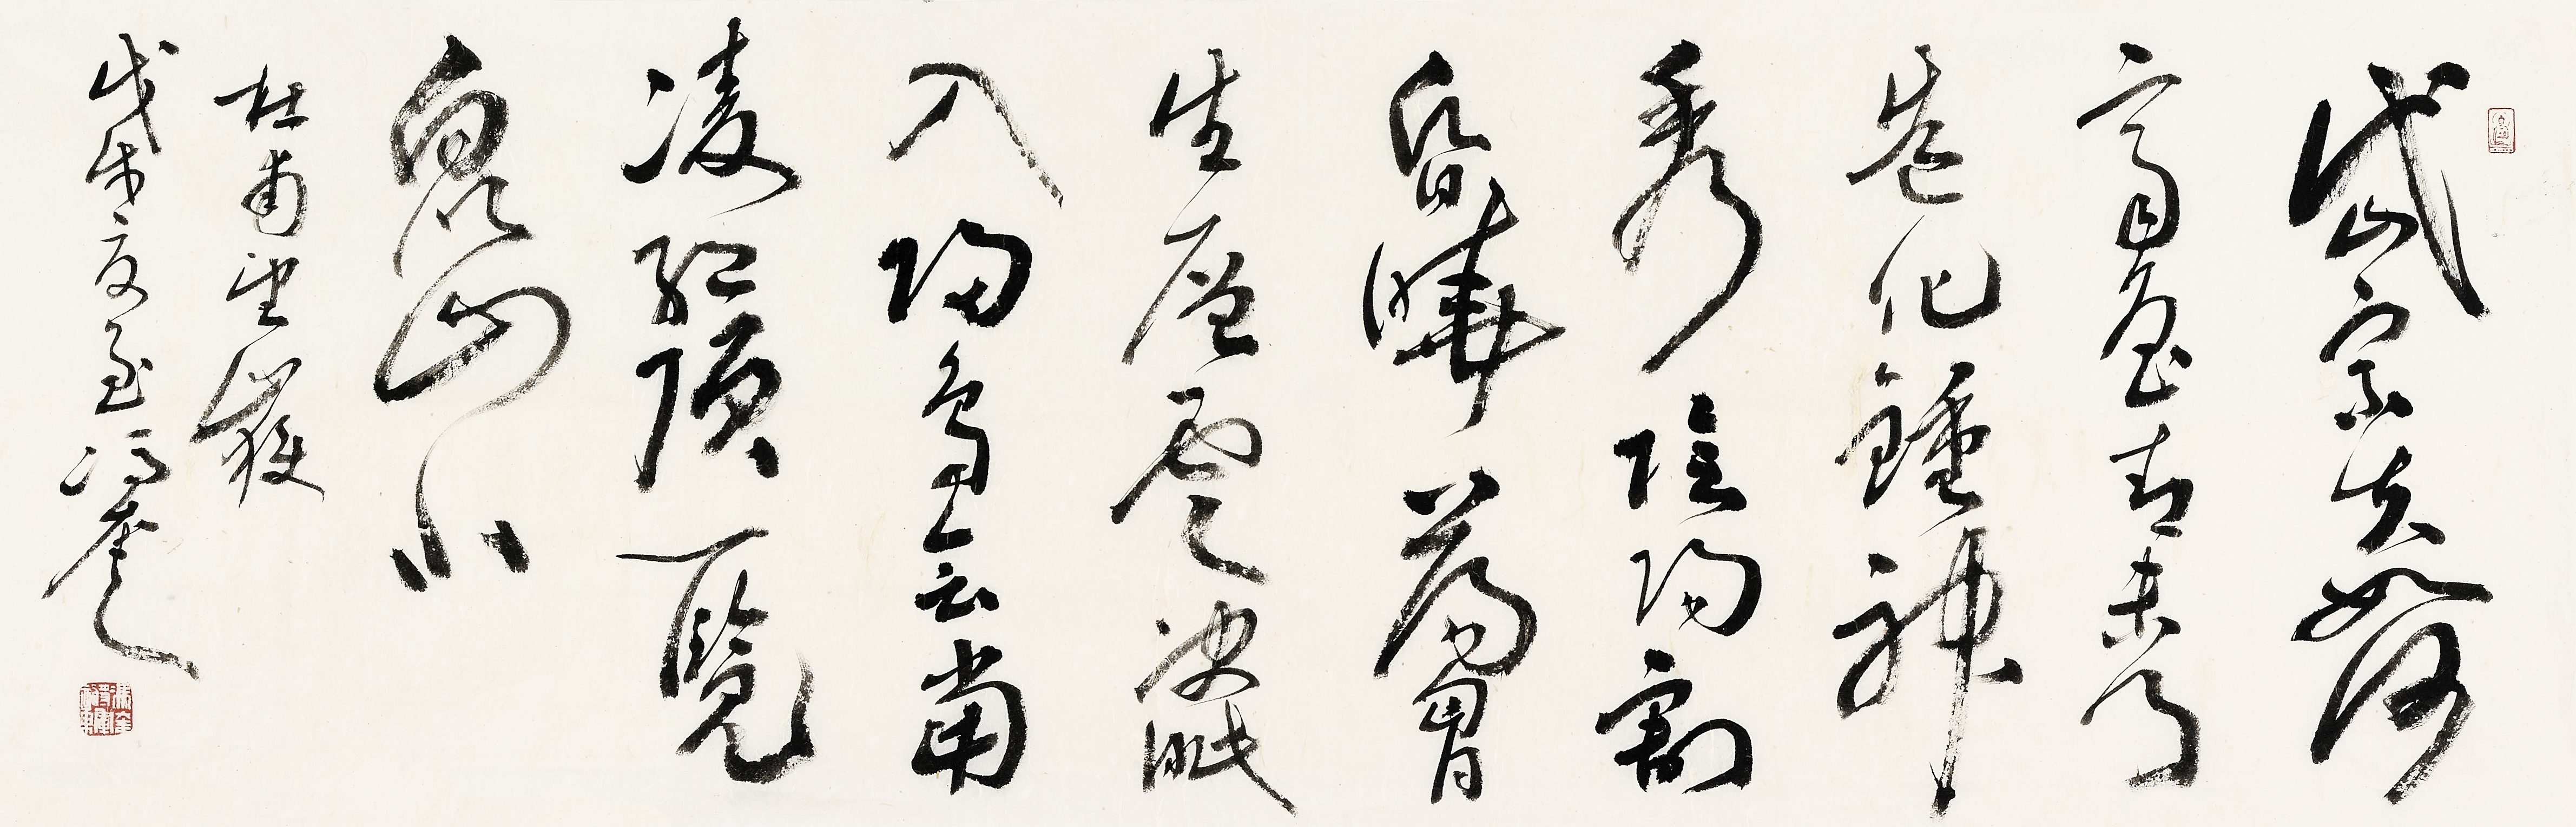 岱宗夫如何
齊魯青未了
造化鍾神
秀陰陽割
昏曉蕩胸
生層雲決眦
入歸鳥會當
凌絕頂一覽
眾山小
杜甫望嶽
戊戌夏至馮奎